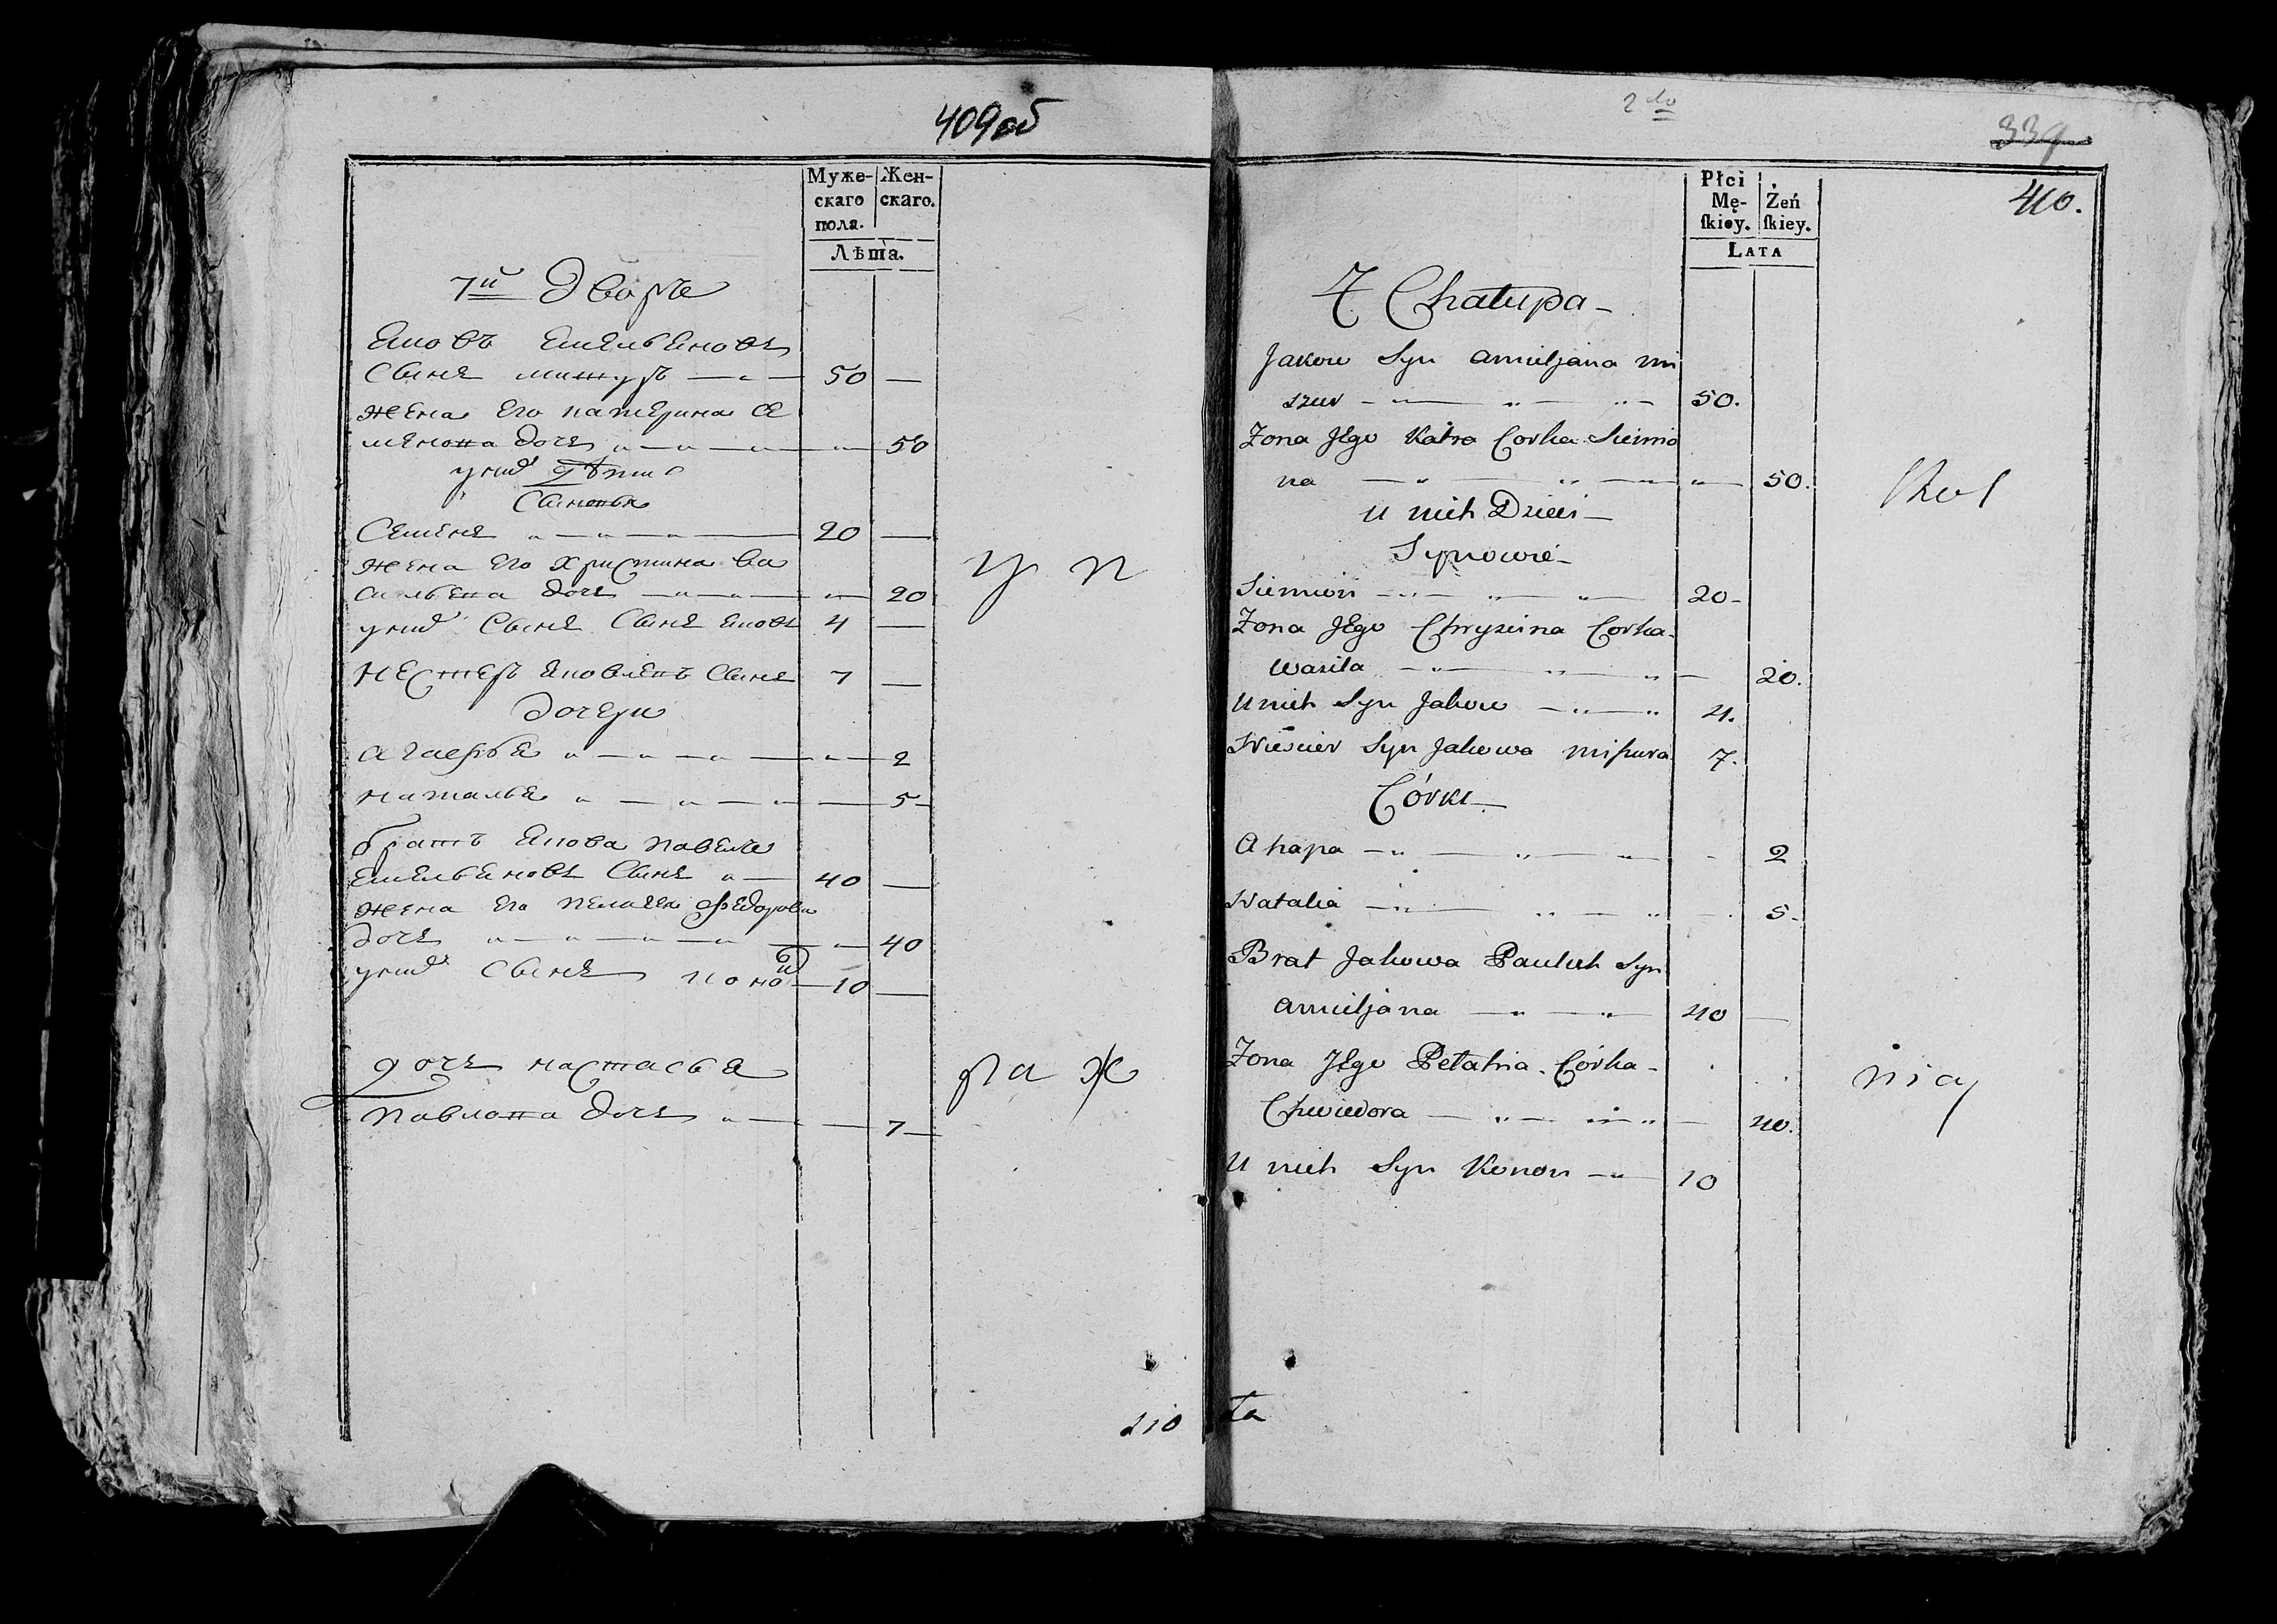 409об
Муже-
скаго
пола.
Жен-
скаго.
Лѣта.
7й Дворъ
Яковъ Емельяновъ
Сынъ мишуръ 50
жена Его катерина Се
менова дочь 50
у нихъ дѣти
Сыновья
Семенъ 20
жена Его христина ва
сильева дочь 20
у нихъ Сынъ Яковъ 4
нестеръ Яковлевъ Сынъ 7
дочери
агафья 2
наталья 5
братъ Якова павелъ
Емельяновъ Сынъ 40
жена Его пелагея федорова
дочь 40
у нихъ Сынъ кононъ 10
дочь настасья
павлова дочь 7
у п
ра ж
2до
339
410.
Płci
Mę-
ſkiey.
Żeń
ſkiey.
Lata
7 Chałupa
Jakow Syn Amiljana mi
szur 50.
Żona Jego Katra Corka Siemio
na 50.
U nich Dzieci
Synowie
Siemion 20
Żona Jego Chryścina Corka
Wasila 20.
U nich Syn Jakow 4.
Nieścier Syn Jakowa miszura 7.
Córki
Ahapa 2
Natalia 5
Brat Jakowa Pauluk Syn
Amiljana 40
Żona Jego Pełahia Córka
Chwiedora 40.
U nich Syn Konon 10